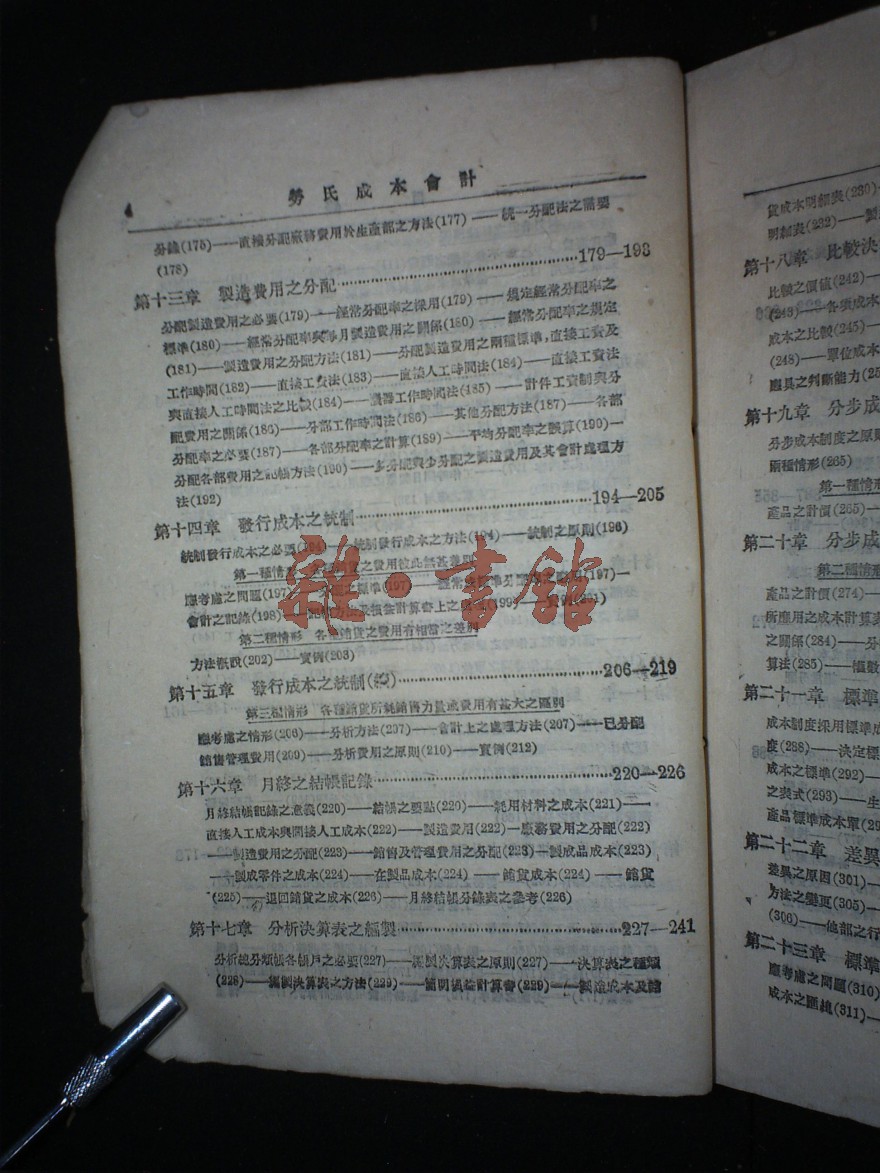 4
勞氏成本會計
分錄(175)——直接分配廠務費用於生產部之方法(177)——統一分配法之需要
(178)
第十三章 製造費用之分配 179—193
分配製造費用之必要(179)——經常分配率之採用(179)——規定經常分配率之
標準(180)——經常分配率與每月製造費用之關係(180)——經常分配率之規定
(181)——製造費用之分配方法(181)——分配製造費用之兩種標準,直接工資及
工作時間(182)——直接工資法(183)——直接人工時間法(184)——直接工資法
與直接人工時間法之比較(184)——機器工作時間法(185)——計件工資制與分
配費用之關係(186)——分部工作時間法(186)——其他分配方法(187)——各部
分配率之必要(187)——各部分配率之計算(189)——平均分配率之誤算(190)—
分配各部費用之記帳方法(190)——多分配與少分配之製造費用及其會計處理方
法(192)
第十四章 發行成本之統制 194—205
統制發行成本之必要(194)——統制發行成本之方法(194)——統制之原則(196)
第一種情形 各種銷貨之費用彼此無甚差別
應考慮之問題(197) 之標準(197) (197)—
會計之記錄(198) 損益計算書上之 (199)——實例(201)
第二種情形 各種銷貨之費用有相當之差別
方法概說(202)——實例(203)
第十五章 發行成本之統制(續) 206—219
第三種情形 各種銷貨所耗銷售力量或費用有甚大之區別
應考慮之情形(206)——分析方法(207)——會計上之處理方法(207)——已分配
銷售管理費用(209)——分析費用之原則(210)——實例(212)
第十六章 月終之結帳記錄 220—226
月終結帳記錄之意義(220)——結帳之要點(220)——耗用材料之成本(221)——
直接人工成本與間接人工成本(222)——製造費用(222)—廠務費用之分配(222)
——製造費用之分配(223)——銷售及管理費用之分配(223)—製成品成本(223)
——製成零件之成本(224)——在製品成本(224)——銷貨成本(224)——銷貨
(225)——退回銷貨之成本(226)——月終結帳分錄表之參考(226)
第十七章 分析決算表之編製 227—241
分析總分類帳各帳戶之必要(227)——編製決算表之原則(227)——決算表之種類
(228)——編製決算表之方法(229)——簡明損益計算書(229)——製造成本及銷
貨成本明細表(230)
明細表(232)——製
第十八章 比較決
比較之價值(242)—
(243)——各項成本
成本之比較(245)—
(248)——單位成本
應具之判斷能力(25
第十九章 分步成
分步成本制度之原則
兩種情形(265)
第一種情形
產品之計價(265)—
第二十章 分步成
第二種情形
產品之計價(274)——
所應用之成本計算表
之關係(284)——分
算法(285)——
第二十一章 標準
成本制度採用標準成
度(288)——決定標
成本之標準(292)——
之表式(293)——生
產品標準成本單(29
第二十二章 差異
差異之原因(301)—
方法之變更(305)—
(306)——他部之行
第二十三章 標準
應考慮之問題(310)
成本之匯總(311)—
雜·書館